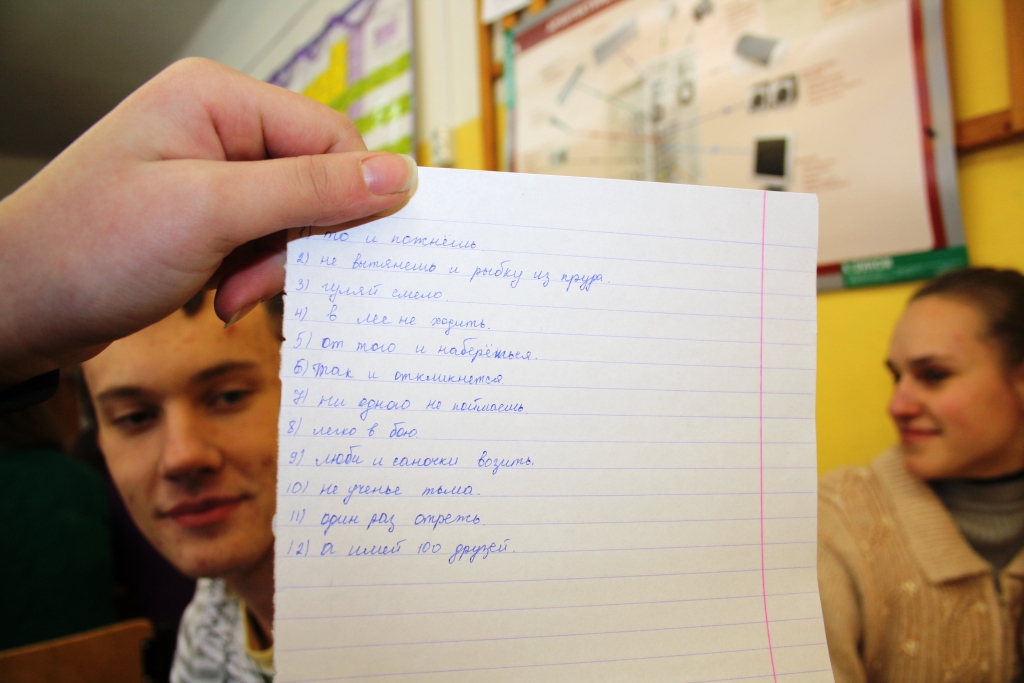 1) то и пожнёшь
2) не вытянешь и рыбку из пруда.
3) гуляй смело.
4) в лес не ходить.
5) от того и наберёшься.
6) Так и откликнется
7) ни одного не поймаешь
8) легко в бою.
9) люби и саночки возить.
10) не ученье тьма.
11) один раз отрежь
12) а имей 100 друзей.